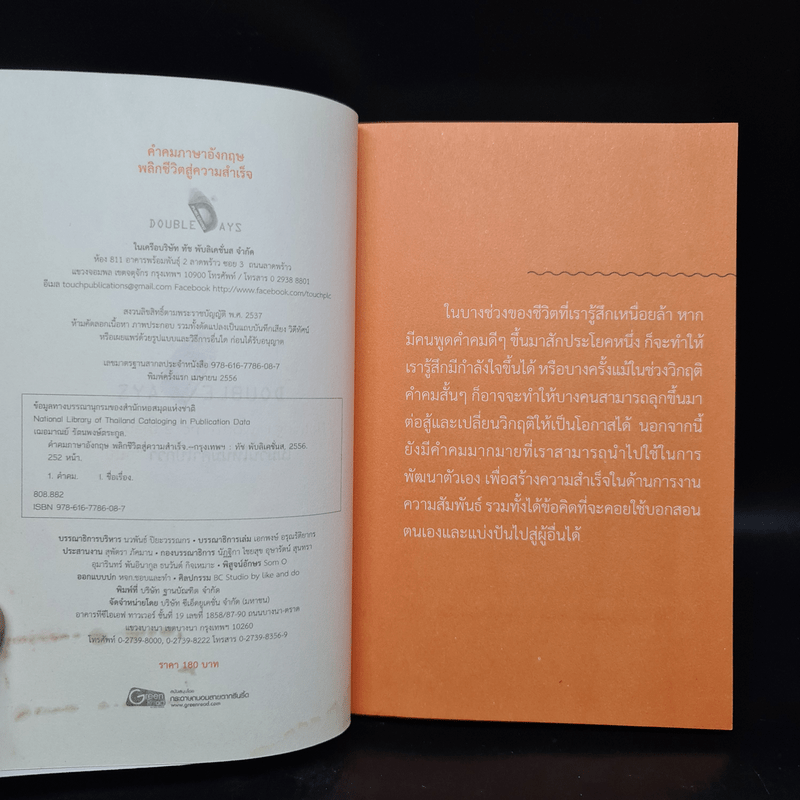 คำคมภาษาอังกฤษ
พลิกชีวิตสู่ความสำเร็จ
DOUBLE DAYS
ในเครือบริษัท ทัช พับลิเคชั่นส จำกัด
ห้อง 811 อาคารพร้อมพันธุ์ 2 ลาดพร้าว ซอย 3 ถนนลาดพร้าว
แขวงจอมพล เขตจตุจักร กรุงเทพฯ 10900 โทรศัพท์ / โทรสาร 0 2938 8801
อีเมล touchpublications@gmail.com Facebook http://www.facebook.com/touchplc
สงวนลิขสิทธิ์ตามพระราชบัญญัติ พ.ศ. 2537
ห้ามคัดลอกเนื้อหา ภาพประกอบ รวมทั้งดัดแปลงเป็นแถบบันทึกเสียง วิดีทัศน์
หรือเผยแพร่ด้วยรูปแบบและวิธีการอื่นใด ก่อนได้รับอนุญาต
เลขมาตรฐานสากลประจำหนังสือ 978-616-7786-08-7
พิมพ์ครั้งแรก เมษายน 2556
ข้อมูลทางบรรณานุกรมของสำนักหอสมุดแห่งชาติ
National Library of Thailand Cataloging in Publication Data
เฌอมาณย์ รัตนพงษ์ตระกูล.
คำคมภาษาอังกฤษ พลิกชีวิตสู่ความสำเร็จ.--กรุงเทพฯ : ทัช พับลิเคชั่นส, 2556.
252 หน้า.
1. คำคม. I. ชื่อเรื่อง.
808.882
ISBN 978-616-7786-08-7
บรรณาธิการบริหาร นวพันธ์ ปิยะวรรณกร • บรรณาธิการเล่ม เอกพงษ์ อรุณรัติยากร
ประสานงาน สุพัตรา ภัคมาน • กองบรรณาธิการ นัฏฐิกา ไชยสุข อุษารัตน์ สุนทรา
อุมารินทร์ พันอินากูล ธนวันต์ กิจเหมาะ • พิสูจน์อักษร Som O
ออกแบบปก หจก.ชอบและทำ • ศิลปกรรม BC Studio by like and do
พิมพ์ที่ บริษัท ฐานบัณฑิต จำกัด
จัดจำหน่ายโดย บริษัท ซีเอ็ดยูเคชั่น จำกัด (มหาชน)
อาคารทีซีไอเอฟ ทาวเวอร์ ชั้นที่ 19 เลขที่ 1858/87-90 ถนนบางนา-ตราด
แขวงบางนา เขตบางนา กรุงเทพฯ 10260
โทรศัพท์ 0-2739-8000, 0-2739-8222 โทรสาร 0-2739-8356-9
ราคา 180 บาท
Green Read
สนับสนุนโดย
กระดาษถนอมสายตากรีนรี้ด
www.greenread.com
ในบางช่วงของชีวิตที่เรารู้สึกเหนื่อยล้า หาก
มีคนพูดคำคมดีๆ ขึ้นมาสักประโยคหนึ่ง ก็จะทำให้
เรารู้สึกมีกำลังใจขึ้นได้ หรือบางครั้งแม้ในช่วงวิกฤติ
คำคมสั้นๆ ก็อาจจะทำให้บางคนสามารถลุกขึ้นมา
ต่อสู้และเปลี่ยนวิกฤติให้เป็นโอกาสได้ นอกจากนี้
ยังมีคำคมมากมายที่เราสามารถนำไปใช้ในการ
พัฒนาตัวเอง เพื่อสร้างความสำเร็จในด้านการงาน
ความสัมพันธ์ รวมทั้งได้ข้อคิดที่จะคอยใช้บอกสอน
ตนเองและแบ่งปันไปสู่ผู้อื่นได้